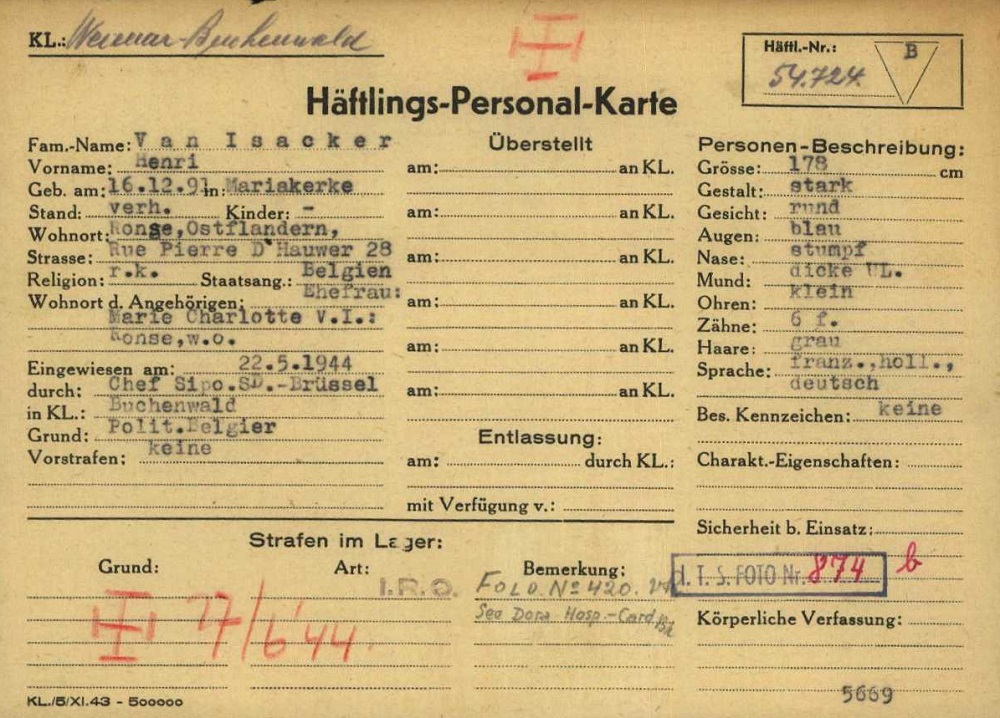 KL.: Weimar-Buchenwald
Häftl.-Nr.:
54.724
B
Häftlings-Personal-Karte
Fam.-Name: Van Isacker
Vorname: Henri
Geb. am: 16.12.91 in: Mariakerke
Stand: verh. Kinder: -
Wohnort: Ronse, Ostflandern,
Strasse: Rue Pierre D'Hauwer 28
Religion: r.k. Staatsang.: Belgien
Wohnort d. Angehörigen: Ehefrau:
Marie Charlotte V.I.:
Ronse, w.o.
Eingewiesen am: 22.5.1944
durch: Chef Sipo.SD.-Brüssel
in KL.: Buchenwald
Grund: Polit.Belgier
Vorstrafen: keine
Überstellt
am: an KL.
am: an KL.
am: an KL.
am: an KL.
am: an KL.
am: an KL.
Entlassung:
am: durch KL.:
mit Verfügung v.:
Personen-Beschreibung:
Grösse: 178 cm
Gestalt: stark
Gesicht: rund
Augen: blau
Nase: stumpf
Mund: dicke UL.
Ohren: klein
Zähne: 6 f.
Haare: grau
Sprache: franz., holl.,
deutsch
Bes. Kennzeichen: keine
Charakt.-Eigenschaften:
Sicherheit b. Einsatz:
I.T.S. FOTO Nr. 874 b
Körperliche Verfassung:
5669
Strafen im Lager:
Grund: Art: Bemerkung:
I.R.O. FOLD. Nº 420.
See Dora Hosp.-Card
17/6 44.
KL./5/XI.43 - 500000